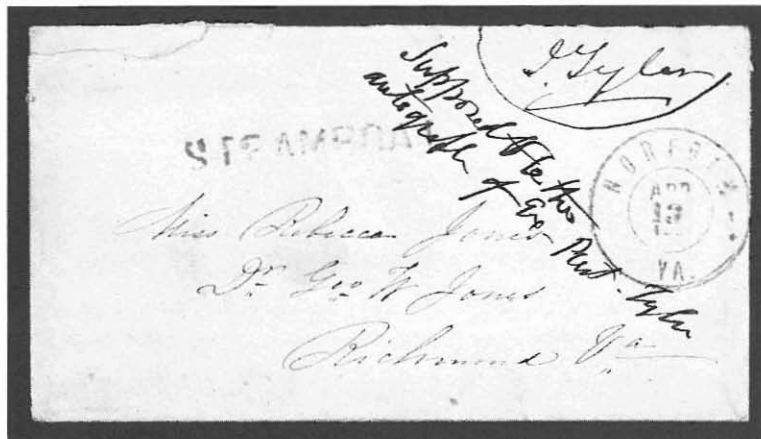 J. Tyler
Supposed to be the
autograph of ex Prest. Tyler
NORFOLK
APR
13
VA.
Miss Rebecca Jones
Dr Geo W Jones
Richmond Va